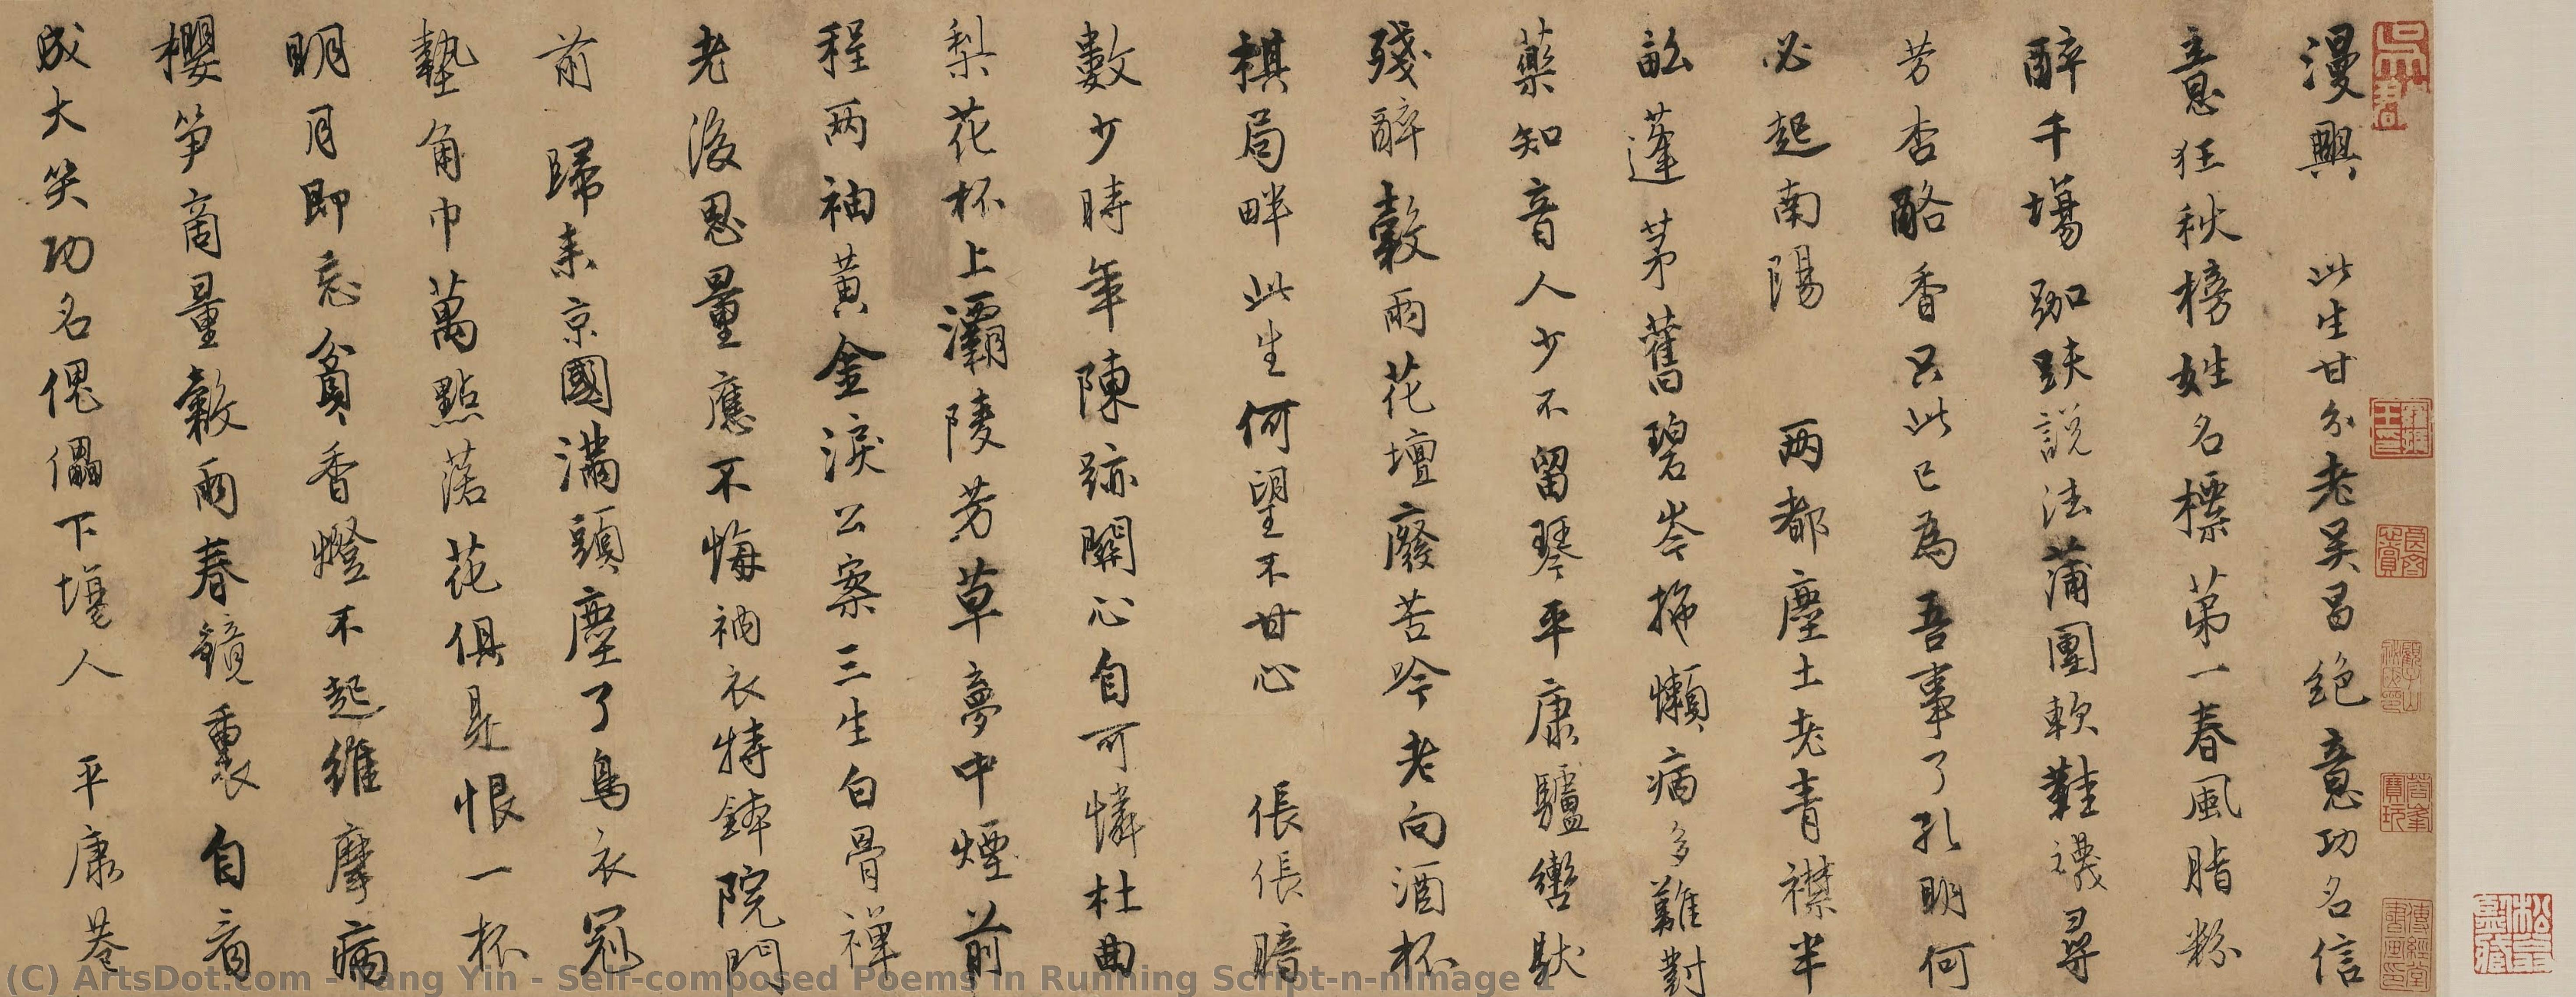 漫興 此生甘分老吴昌絶意功名信
意狂秋榜姓名標第一春風脂粉
醉千塲跏趺説法蒲團軟鞋襪尋
芳杏酪香只此已為吾事了孔明何
必起南陽 两都塵土老青襟半
畝蓬茅舊碧岑拖懶病多難對
藥知音人少不留琴平康驢轡馱
殘醉穀雨花壇廢苦吟老向酒杯
棋局畔此生何望不甘心 倀倀暗
數少時年陳跡關心自可憐杜曲
梨花杯上灞陵芳草夢中煙前
程两袖黄金淚公案三生白骨禅
老後思量應不悔衲衣持鉢院門
前 歸来京國滿頭塵了鳥衣冠
墊角巾萬點落花俱是恨一杯
明月即忘貧香燈不起維摩病
櫻筍商量穀雨春鏡裏自看
成大笑功名傀儡下塲人 平康巷
(C) ArtsDot.com - Tang Yin - Self-composed Poems in Running Script-n-nImage 1